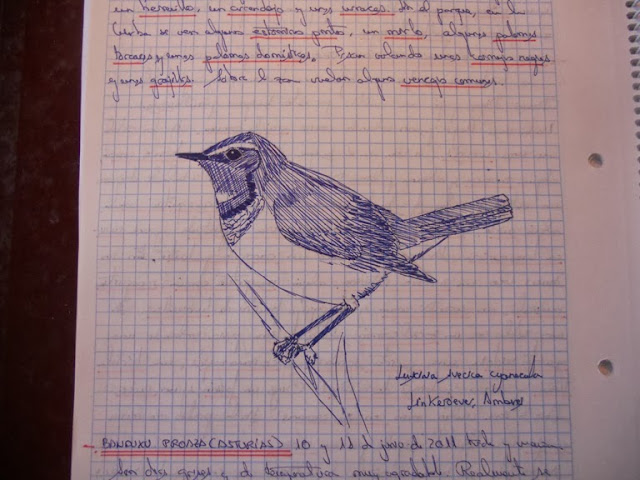 un herrerillo, un arrendajo y unas urracas. En el parque, en la
se ven algunos estorninos pintos, un mirlo, algunas palomas
torcaces y unas palomas domésticas. Pasan volando unas cornejas negras
y unas grajillas. Sobre la zona vuelan algunos vencejos comunes.
Luscinia svecica cyanecula
Linkeroever,
BANDUXU PROAZA (ASTURIAS) 10 y 11 de junio de 2011 tarde y mañana
Son dos y de temperatura muy agradable. Realmente se